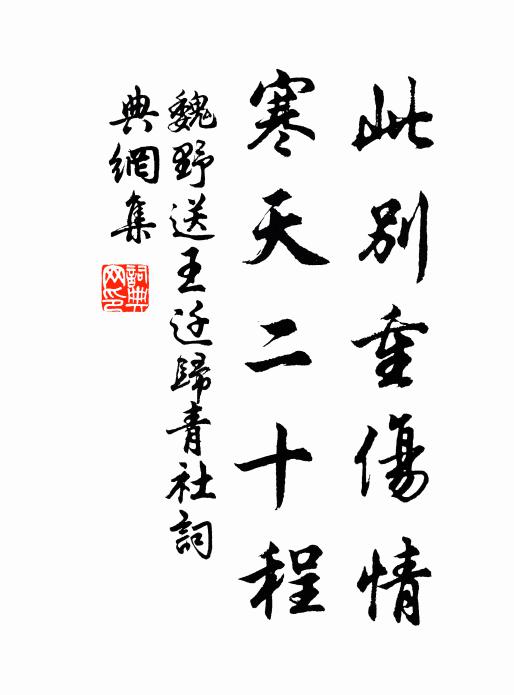 此別重傷情
寒天二十程
魏野送王迁歸青社詞
典網集
詞典
网印